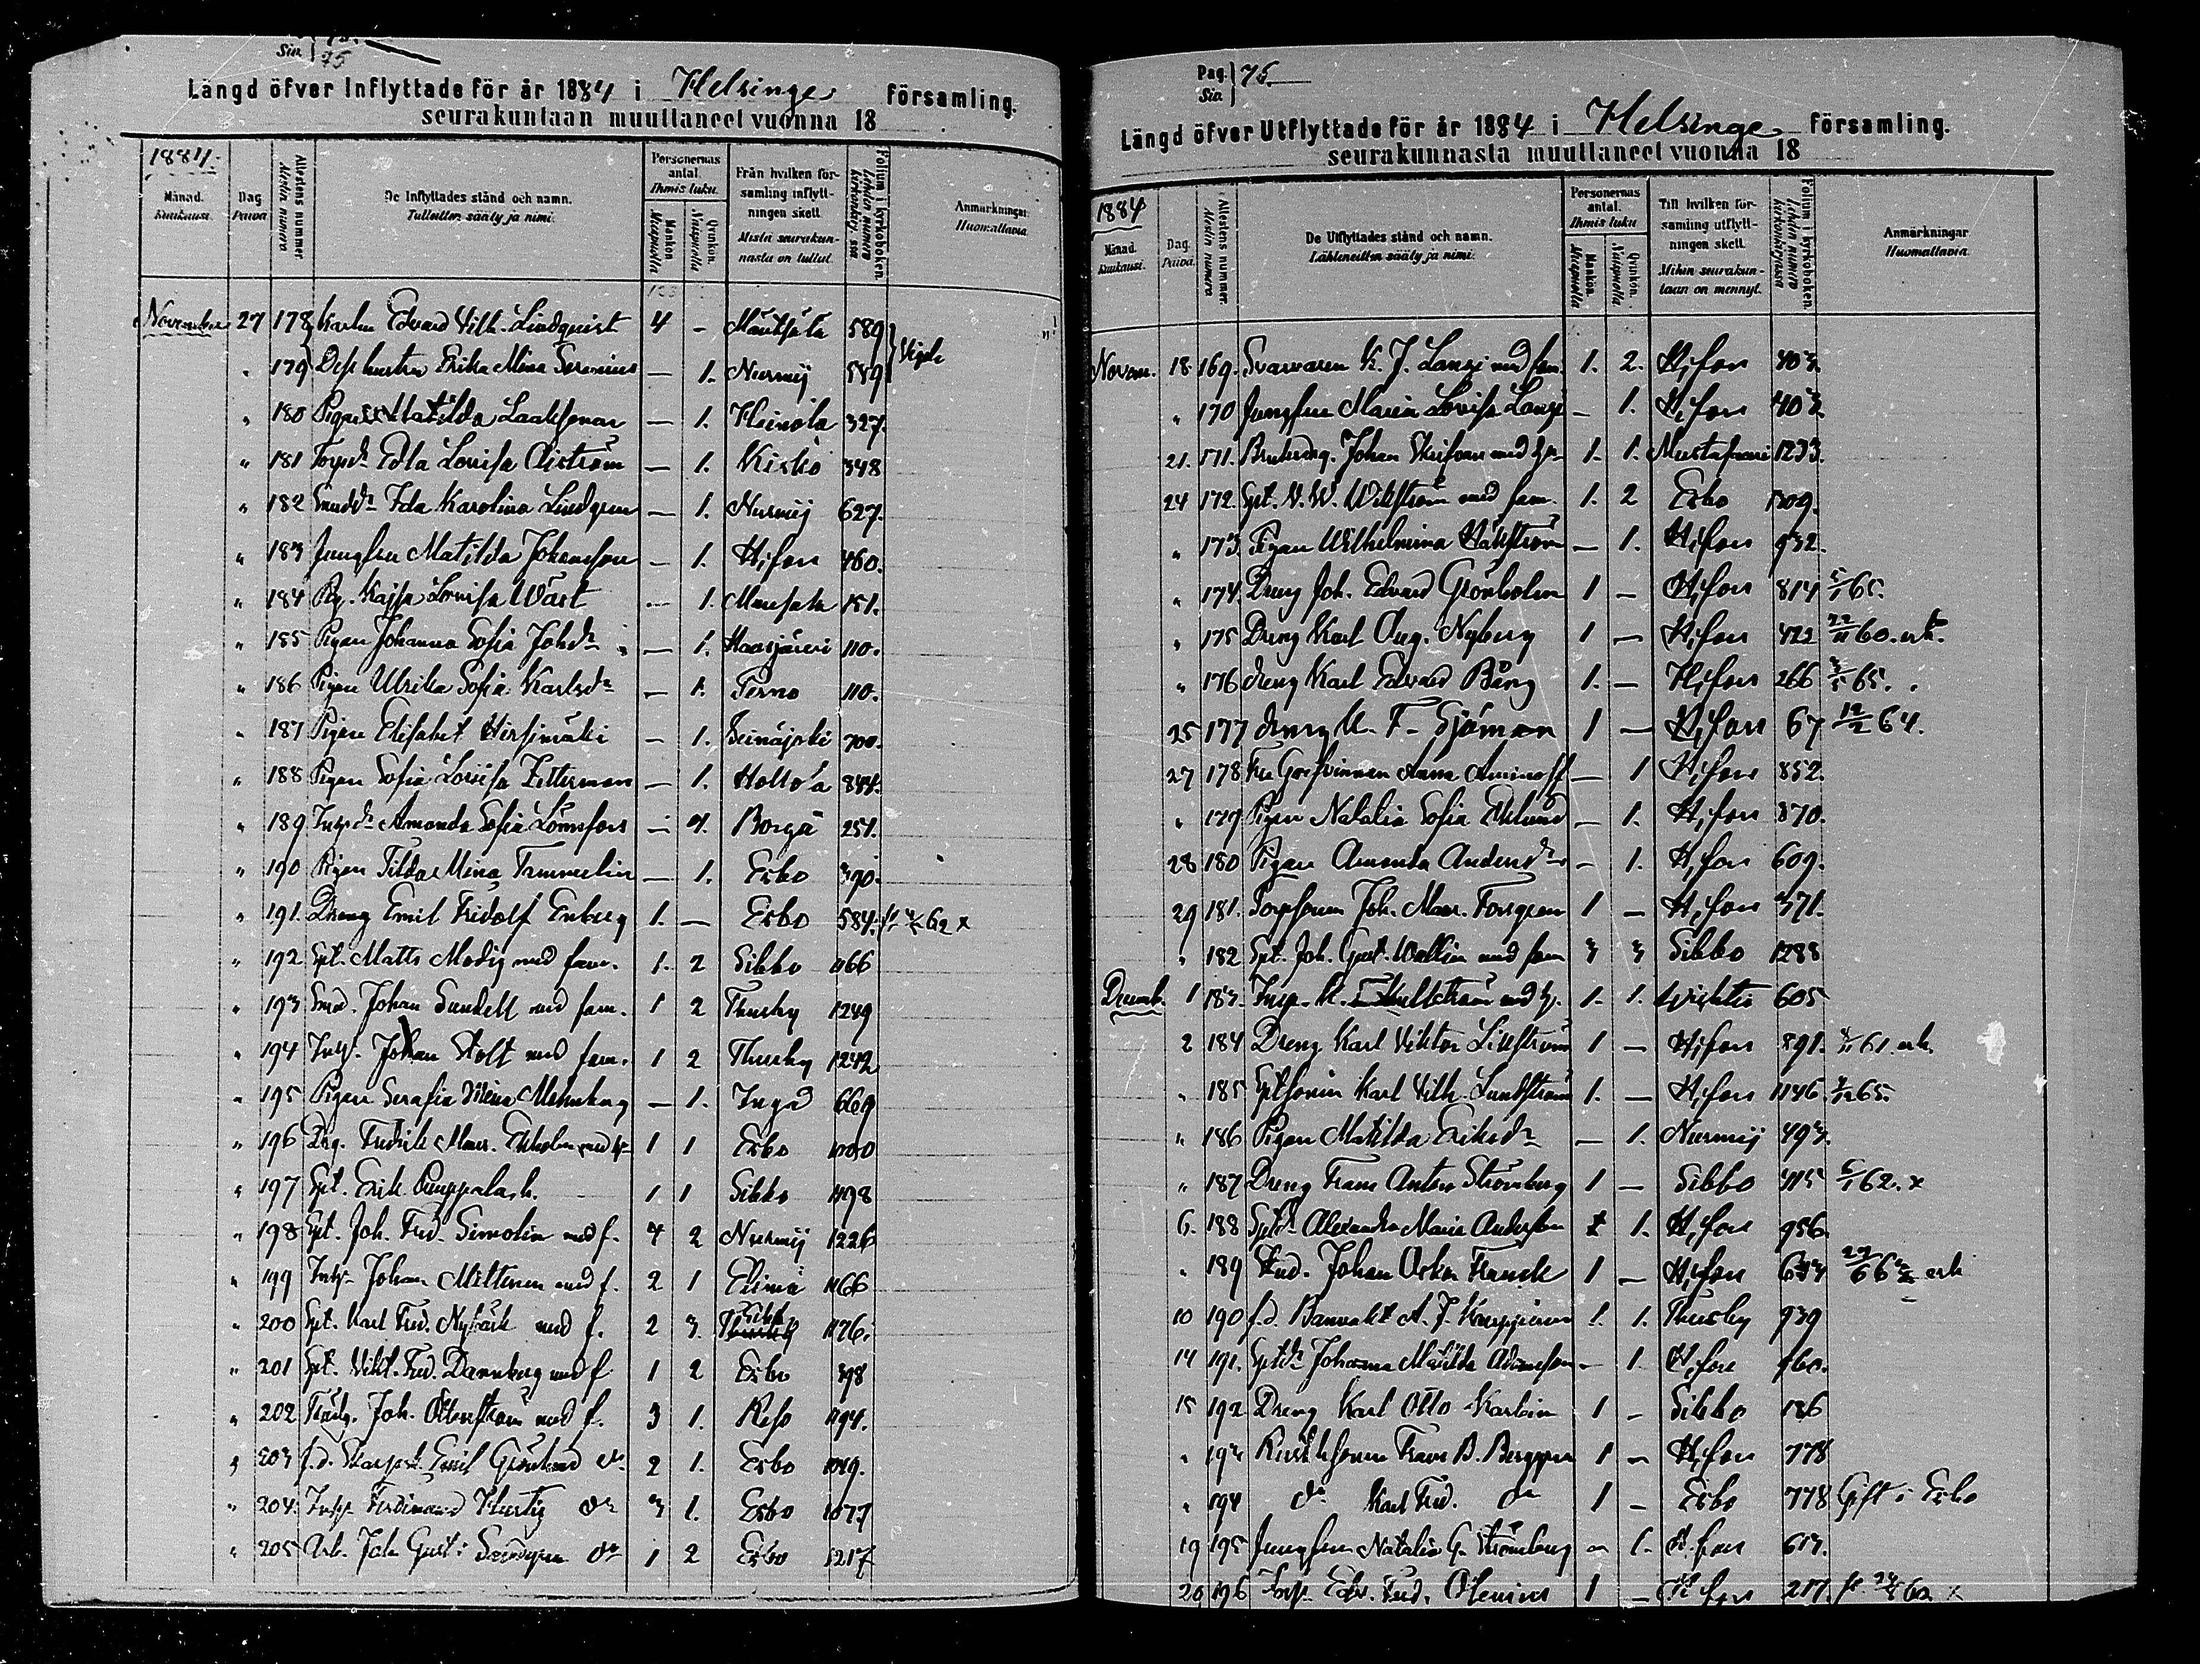 Sia. 75
Längd öfver Inflyttade för år 1884 i Helsinge församling.
seurakuntaan muuttaneet vuonna 18
1884.
Månad. Kuukausi.
Dag Päivä
Attestens nummer Mestin numero
De Inflyttades stånd och namn. Tulleitten sääty ja nimi.
Personernas antal. Ihmis luku.
Mankön Miespuolia
Qvinkön. Naispuolia
Från hvilken församling inflyttningen skett. Mistä seurakunnasta on tullut.
Folium i kyrkoboken.
Anmärkningar. Huomattavia.
November 27 178 Karlen Edvard Vilh. Lindqvist 4 - Mäntsälä 589 Vigde
" 179 Dess hustru Erika Mina Serenius — 1. Nurmij 589
" 180 Pigan Matilda Laaksonen — 1. Heinola 327.
" 181 Torpdr Edla Lovisa Öiström — 1. Kisko 348
" 182 Smeddr Ida Karolina Lindgren — 1. Nurmij 627.
" 183 Jungfru Matilda Johansson — 1. H,fors 460.
" 184 Pig. Kajsa Lovisa Wäst — 1. 151.
" 185 Pigan Johanna Sofia Johdr — 1. Haapjärvi 110.
" 186 Pigan Ulrika Sofia Karlsdr — 1. Perno 110.
" 187 Pigan Elisabet Hirsimäki — 1. Seinäjoki 700.
" 188 Pigan Sofia Lovisa Zetterman — 1. Hollola 844.
" 189 Inhdr Amanda Sofia Lönnfors — 1. Borgå 251.
" 190 Pigan Tilda Mina Tammelin — 1. Esbo 390.
" 191. Dreng Emil Fridolf Enberg 1. — Esbo 584. 62 x
" 192 Spt. Matts Modig med fam. 1. 2 Sibbo 1166
" 193 Smed. Johan Sundell med fam. 1 2 Thusby 1249
" 194 Inh. Johan Stolt med fam. 1 2 Thusby 1242
" 195 Pigan Serafia Mina Malmberg — 1. Ingå 669
" 196 Drg. Fredrik Maur. Ekholm med h 1 1 Esbo 1000
" 197 Spt. Erik 1. 1 Sibbo 1198
" 198 Spt. Joh. Fred. Simolin med f. 4 2 Nurmij 1226
" 199 Inh. Johan Mittinen med f. 2 1 Elimä 1166
" 200 Spt. Karl Fred. Nybäck med f. 2 3. Sibbo 1176.
" 201 Spt. Vikt. Fred. Dannberg med f 1 2 Esbo 398
" 202 Joh. Ottenström med f. 3 1. Reso 1194.
" 203 f.d. Emil Grönlund dr. 2 1. Esbo 1019.
" 204. Inh. Ferdinand Hurtig do 3 1. Esbo 1077
" 205 Arb. Joh. Gust. do 1 2 Esbo 1217
Pag. Sia. 75.
Längd öfver Utflyttade för år 1884 i Helsinge församling.
seurakunnasta muuttaneet vuonna 18
1884
Månad. Kuukausi.
Dag. Päivä.
Attestens nummer. Mestin numero
De Utflyttades stånd och namn. Lähteneitten sääty ja nimi.
Personernas antal. Ihmis luku
Mankön. Miespuolia
Qvinkön. Naispuolia
Till hvilken församling utflyttningen skett. Mihin seurakuntaan on mennyt.
Folium i kyrkoboken.
Anmärkningar. Huomattavia.
Novem. 18. 169. Svarvaren K. J. Lange med fam. 1. 2. H,fors 403.
" 170 Jungfru Maria Lovisa Lange — 1. H,fors 403.
21. 171. Johan med h 1. 1. Mustasaari 1233.
24 172. Spt. V. W. Wikström med fam. 1. 2 Esbo 1209.
" 173. Pigan Wilhelmina — 1. H,fors 932.
" 174. Dreng Joh. Edvard Grönholm 1 — H,fors 814 65.
" 175 Dreng Karl Aug. Nyberg 1 — H,fors 422 22/11 60. erh.
" 176 dreng Karl Edvard Bäng 1. — H,fors 266 65.
25 177 dreng K. F. Sjöman 1 — H,fors 67 12/2 64.
27 178 Fru Grefvinnan Anna Aminoff — 1 H,fors 852.
" 179 Pigan Natalia Sofia Eklund — 1. H,fors 870.
28 180 Pigan Amanda Andersdr — 1. H,fors 609.
29 181. Torpsonen Joh. Maur. Forsgren 1 — H,fors 371.
" 182 Spt. Joh. Gust. Wallin med fam 3 3 Sibbo 1288
Decemb. 1 183. Inh. K. med h. 1. 1. Wichtis 605
2 184 Dreng Karl Viktor Lindström 1 — H,fors 891. 61. erh.
" 185 Sptsonen Karl Vilh. Lundström 1. — H,fors 1146. 65.
" 186 Pigan Matilda Eriksdr — 1. Nurmij 493.
" 187 Dreng Frans Anton Strömberg 1 — Sibbo 415 62. x
6. 188 Sptdr Alexandra Maria Andersson 1. H,fors 956.
" 189 Stud. Johan Oskar Franck 1 — H,fors 66 erh
10 190 f.d. Banvakt A. J. 1. 1. Thusby 939
14 191. Sptdr Johanna Matilda Adamsson — 1. H,fors 160.
15 192 Dreng Karl Otto Karlsin 1 — Sibbo 186
" 193 Frans B. Berggren 1 — H,fors 778
" 194 do Karl Fred. do 1 — Esbo 778 Gift i Esbo
19 195 Jungfru Natalia G. Strömberg — 1. H,fors 613.
20 196 Inh. Edv. Fred. 1 — H,fors 217. 62 x